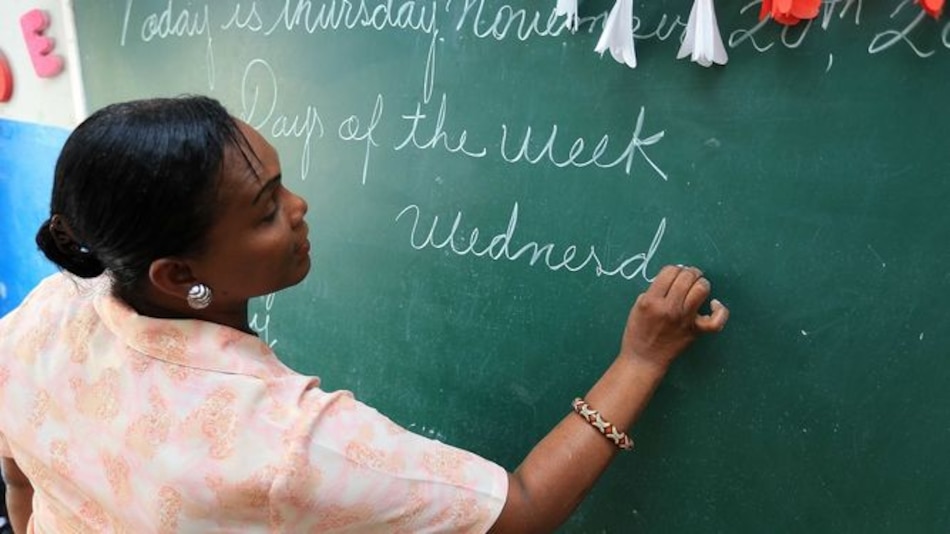 Today is thursday November 20th, 20
Days of the Week
Wednesd
y
E